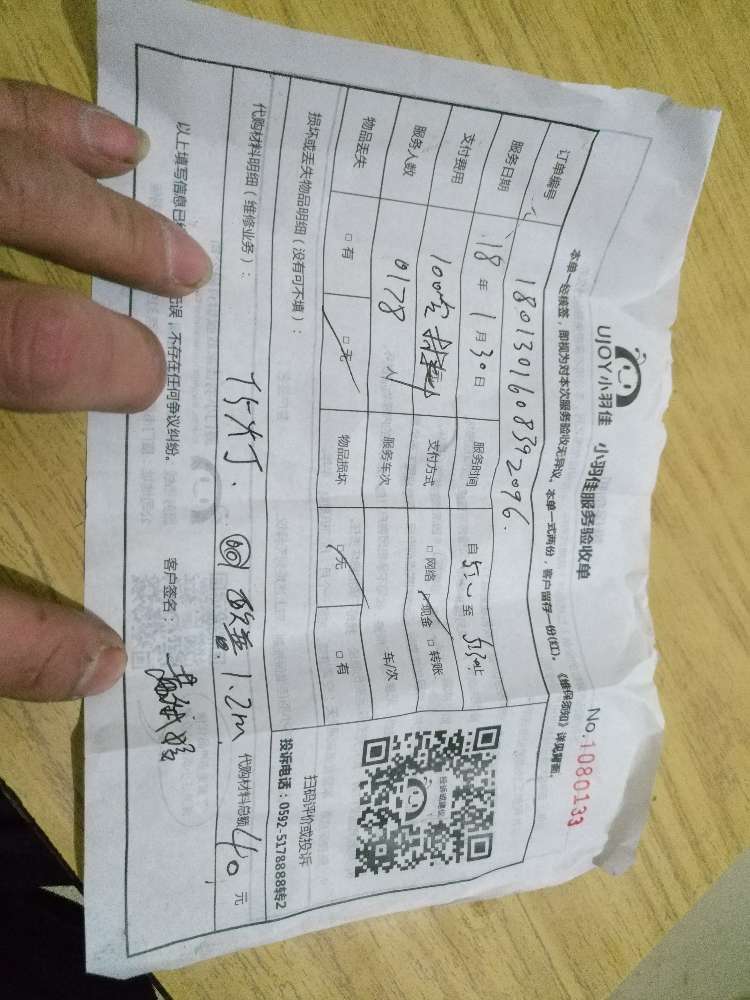 UJOY小羽佳 小羽佳服务验收单
No.1080133
本单一经核签，即视为对本次服务验收无异议。本单一式两份，客户留存一份(红)。《维保须知》详见背面。
订单编号 1801301608392096.
服务日期 18年1月30日 服务时间 自 至
支付费用 100 支付方式 □网络 □现金 □转账
服务人数 0178 人 服务车次 车/次
物品丢失 □有 □无 物品损坏 □无 □有
损坏或丢失物品明细（没有可不填）：
扫码评价或投诉
投诉电话：0592-5178888转2
代购材料明细（维修业务）： 灯. 1.2m 代购材料总额 40 元
以上填写信息已 误，不存在任何争议纠纷。 客户签名：